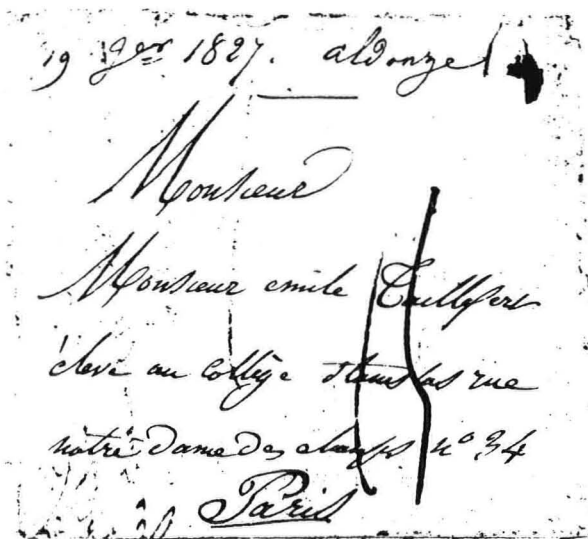 19 9bre 1827. aldonze
Monsieur
Monsieur emile Taillefert
éleve au collège stanislas rue
notre dame des champs n° 34
Paris